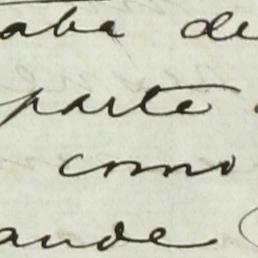 aba de
parte
como
ande